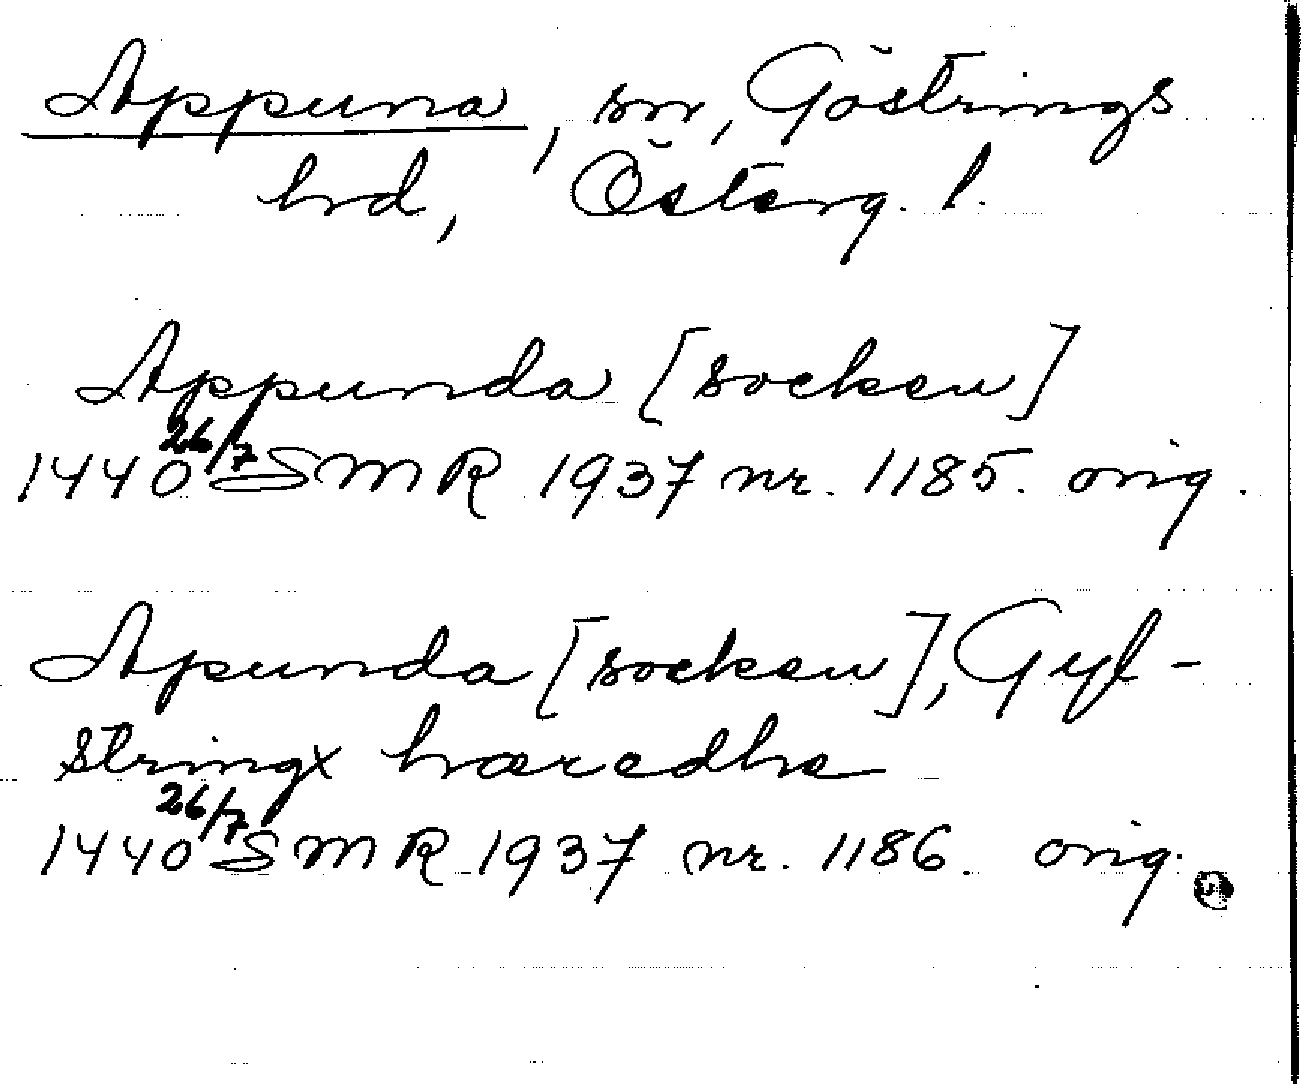 Appuna, sn, Göstrings
hrd, Österg. l.
Appunda [socken]
1440 26/7 SMR 1937 nr. 1185. orig.
Apunda [socken], Gyl-
stringx hæredhe
1440 26/7 SMR 1937 nr. 1186. orig.